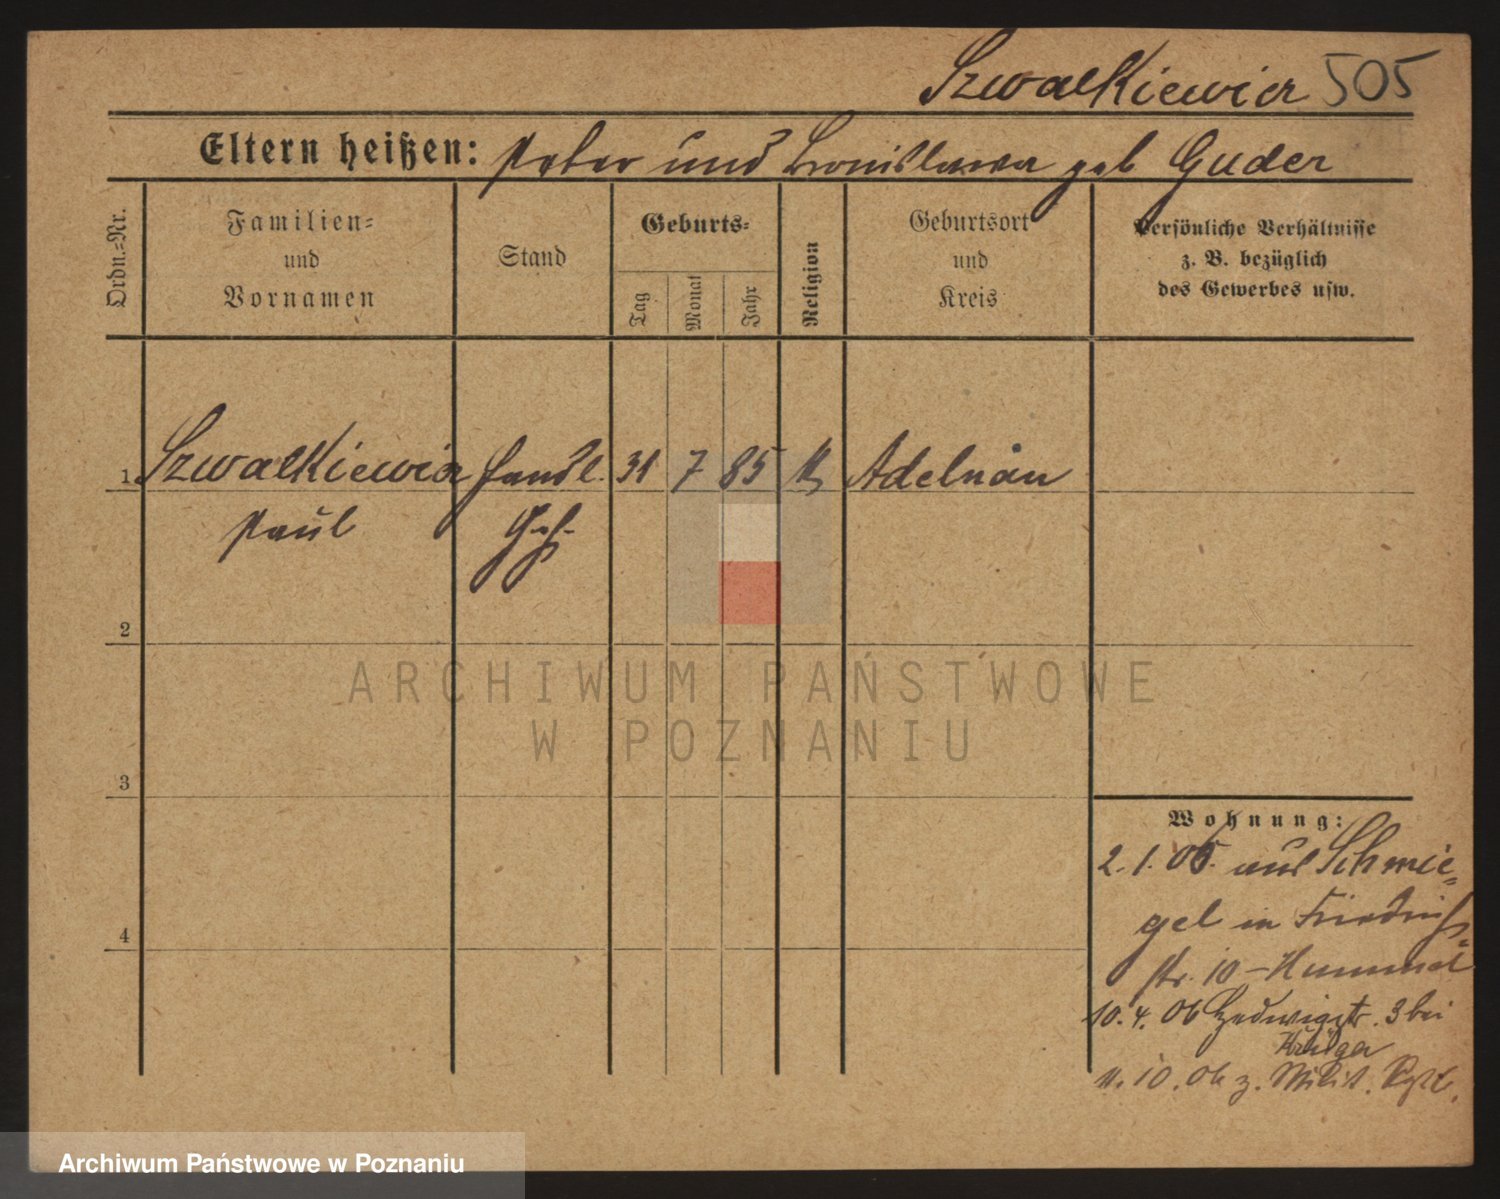 Szwalkiewicz 505
Eltern heißen: Peter und Bronislawa geb Guder
Ordn.-Nr.
Familien-
und
Vornamen
Stand
Geburts-
Tag
Monat
Jahr
Religion
Geburtsort
und
Kreis
Persönliche Verhältnisse
z. B. bezüglich
des Gewerbes usw.
1 Szwalkiewicz Handl. 31 7 85 K Adelnau
Paul Geh.
2
3
4
Wohnung:
2.1.05. aus Schmie=
gel in Friedrich=
str. 10 - Hummel
10.4.06 Hedwigstr. 3 bei
Krüger
10.06 z. Milit.
ARCHIWUM PAŃSTWOWE
W POZNANIU
Archiwum Państwowe w Poznaniu